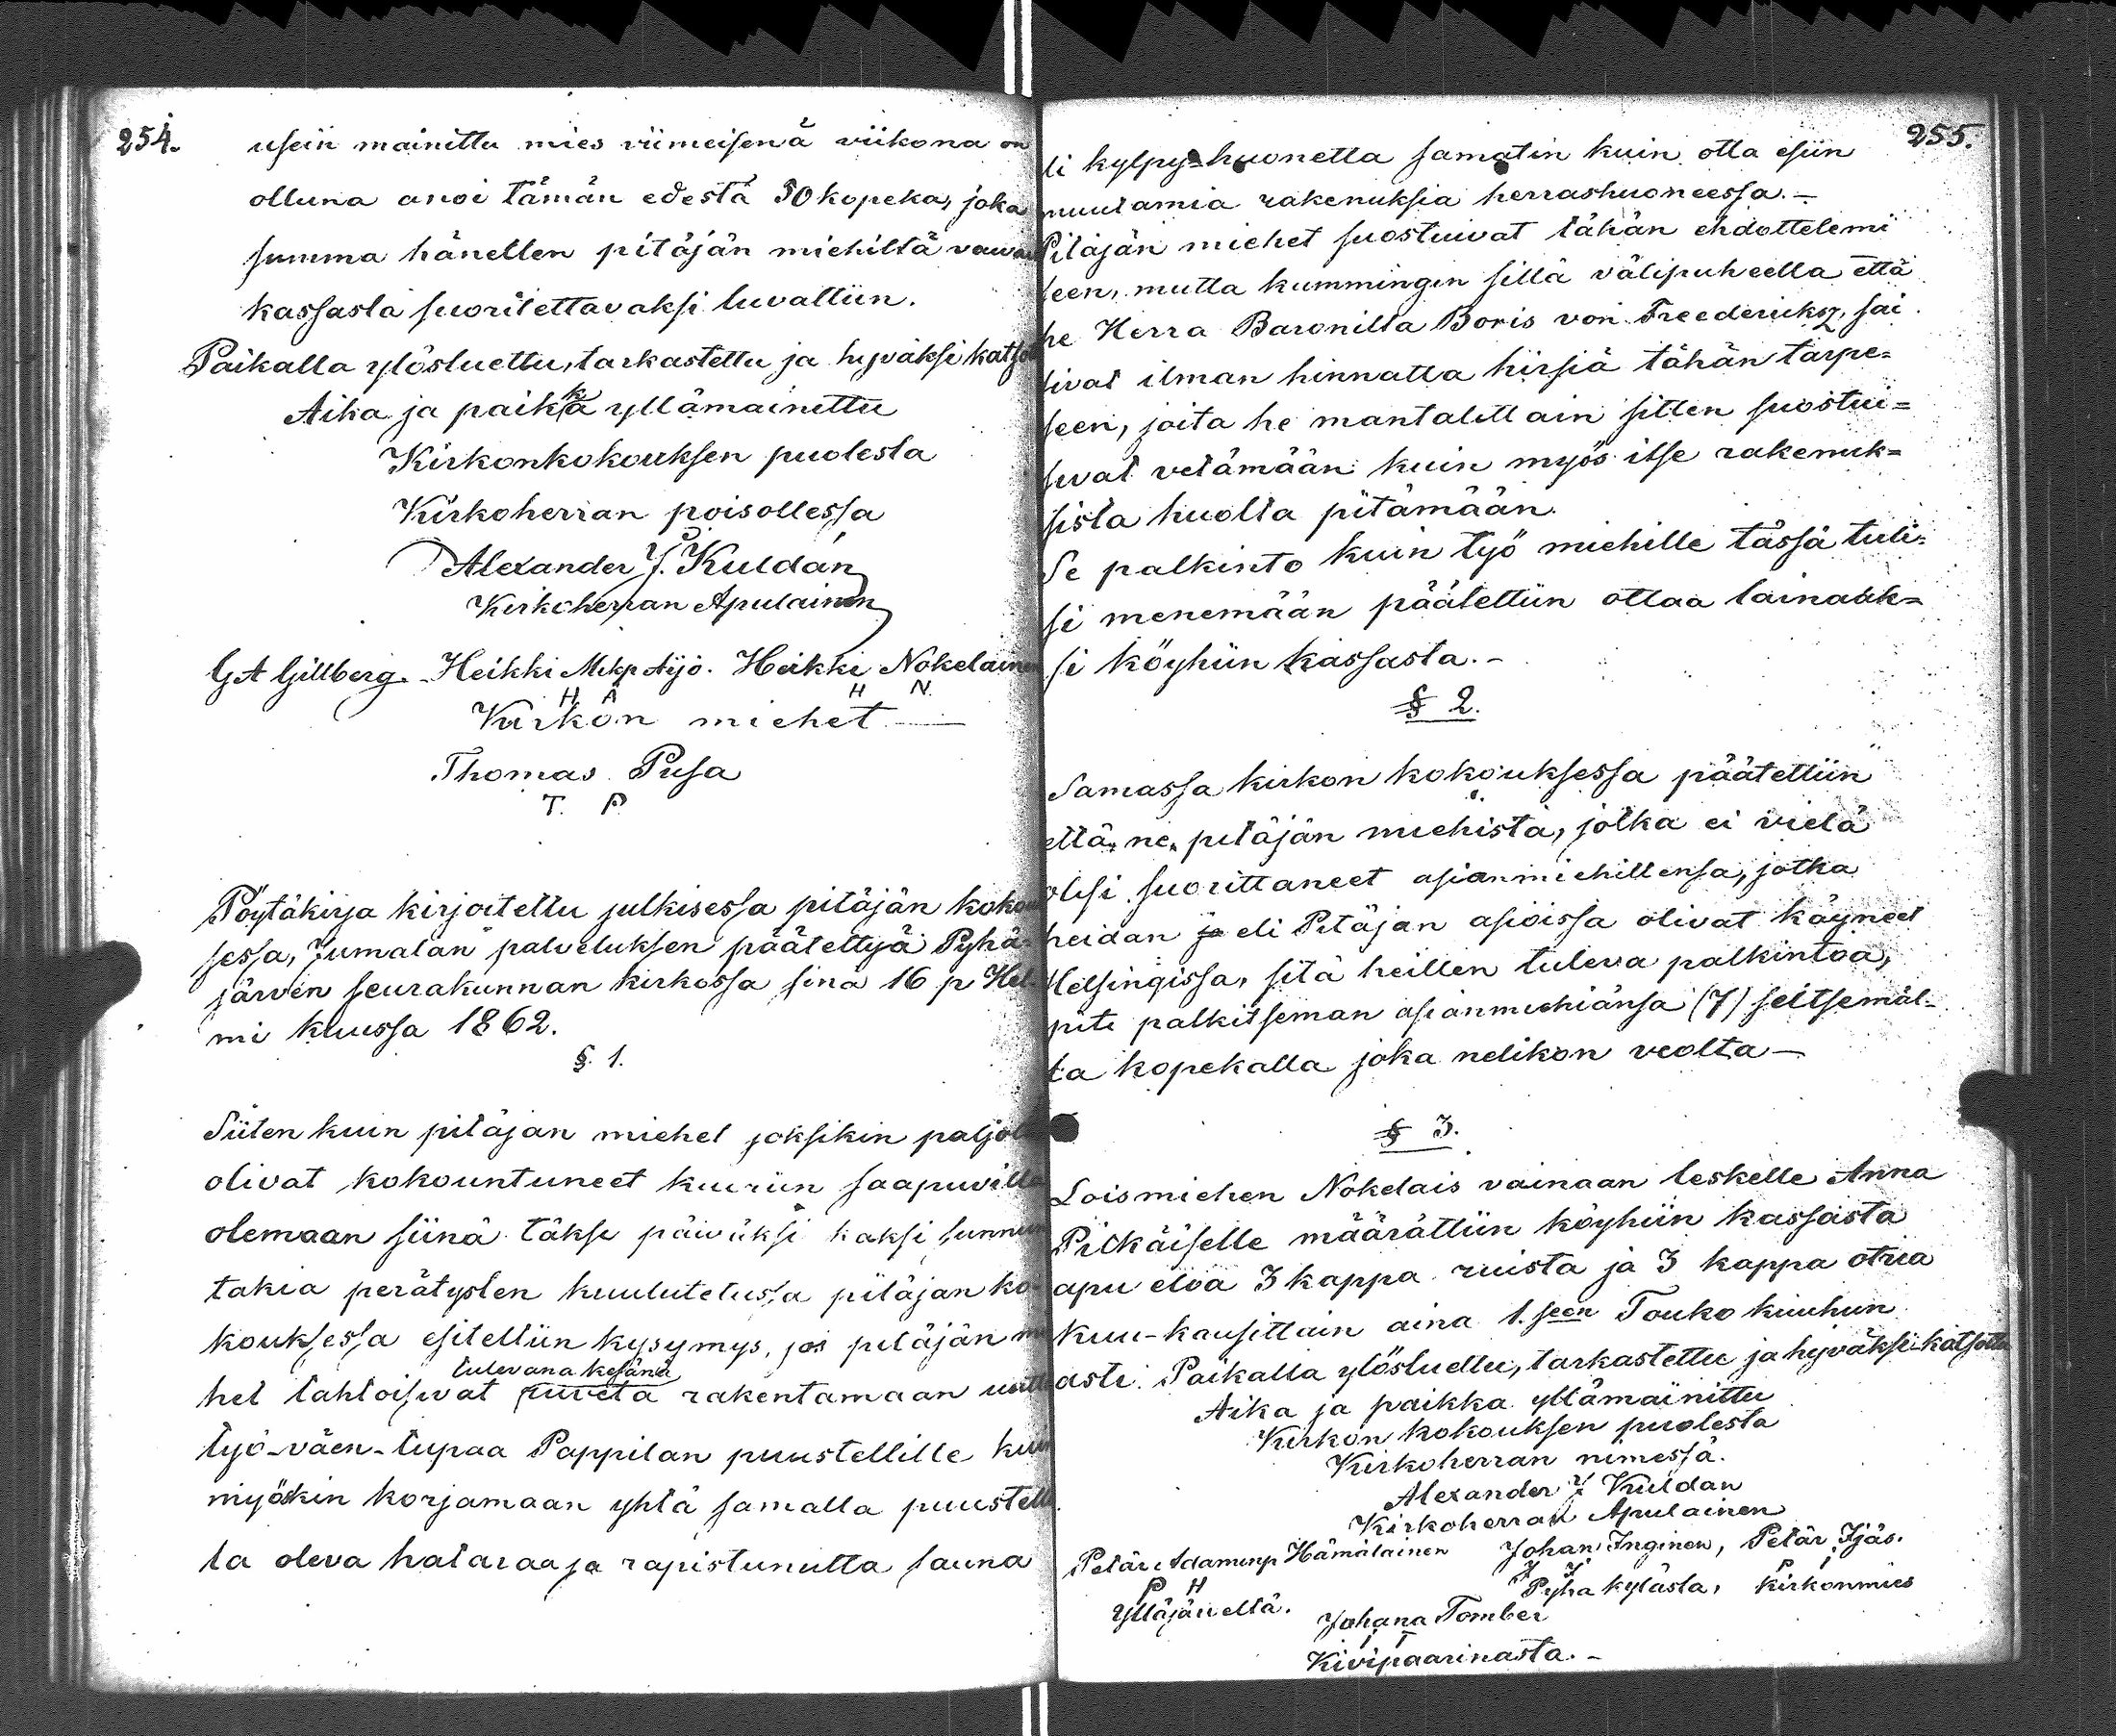 254.
usein mainittu mies viimeisenä viikona on
olluna anoi tämän edestä 50 kopeka, joka
summa hänellen pitäjän miehiltä vaivai
kassasta suoritettavaksi luvattiin.
Paikalla ylösluettu, tarkastettu ja hyväksi katso
Aika ja paikka yllämainittu
Kirkonkokouksen puolesta
Kirkoherran poisollessa
Alexander J. Kuldán
Kirkoherran Apulainen
G A Gillberg. Heikki Mikp Äijö. Heikki Nokelainen
H Ä H N.
Kirkon miehet
Thomas Pusa
T. P.
Pöytäkirja kirjoitettu julkisessa pitäjän kokou
sessa, Jumalan palveluksen päätettyä Pyhä-
järven seurakunnan kirkossa sinä 16 p Hel-
mi kuussa 1862.
§. 1.
Siiten kuin pitäjan miehet joksikin paljolt
olivat kokountuneet kuuriin saapuvilla
olemaan siinä täksi päiväksi kaksi sunnun
takia perätysten kuulutelussa pitäjan ko-
kouksessa esitettiin kysymys, jos pitäjän mi
tulevana kesänä
het tahtoisivat ruveta rakentamaan uutt
työ-väen-tupaa Pappilan puustellille kuin
myöskin korjamaan yhtä samalla puustelli
la oleva hataraa ja rapistunutta sauna
255.
li kylpy-huonetta samatin kuin otta esiin
muutamia rakenuksia herrashuoneessa.-
Pitäjän miehet suostuivat tähän ehdottelemi
seen, mutta kummingin sillä välipuheella että
he Herra Baronilta Boris von Freedericksz, sai
sivat ilman hinnatta hirsiä tähän tarpe=
seen, joita he mantalittain sitten suostui=
suvat vetämään kuin myös itse rakenuk=
sista huolta pitämään.
Se palkinto kuin työ miehille tässä tuli=
si menemään päätettiin ottaa lainaak=
si köyhiin kassasta.-
§ 2.
Samassa kirkon kokouksessa päätettiin
että ne pitäjän miehistä, jotka ei vielä
olisi suorittaneet asianmiehillensa, jotka
heidan ja eli Pitäjan asioissa olivat käyneet
Helsingissa, sitä heillen tuleva palkintoa,
piti palkitseman asianmiehiänsa (7) seitsemäl-
la kopekalla joka nelikon veolta-
§ 3.
Loismiehen Nokelais vainaan leskelle Anna
Pitkäiselle määrättiin köyhiin kassasta
apu eloa 3 kappa ruista ja 3 kappa otria
kuu-kausittain aina 1.seen Touko kuuhun
asti. Paikalla ylösluettu, tarkastettu ja hyväksi katsottu
Aika ja paikka yllämainittu
Kirkon kokouksen puolesta
Kirkoherran nimessä.
Alexander J Kuldan
Kirkoherran Apulainen
Petär Adaminp Hämäläinen Johan Inginen, Petär Ijäs.
P H J I P I
Ylläjäneltä. Pyhä kylästa, Kirkonmies
Johana Tomber
I T
Kivipaarinasta.-